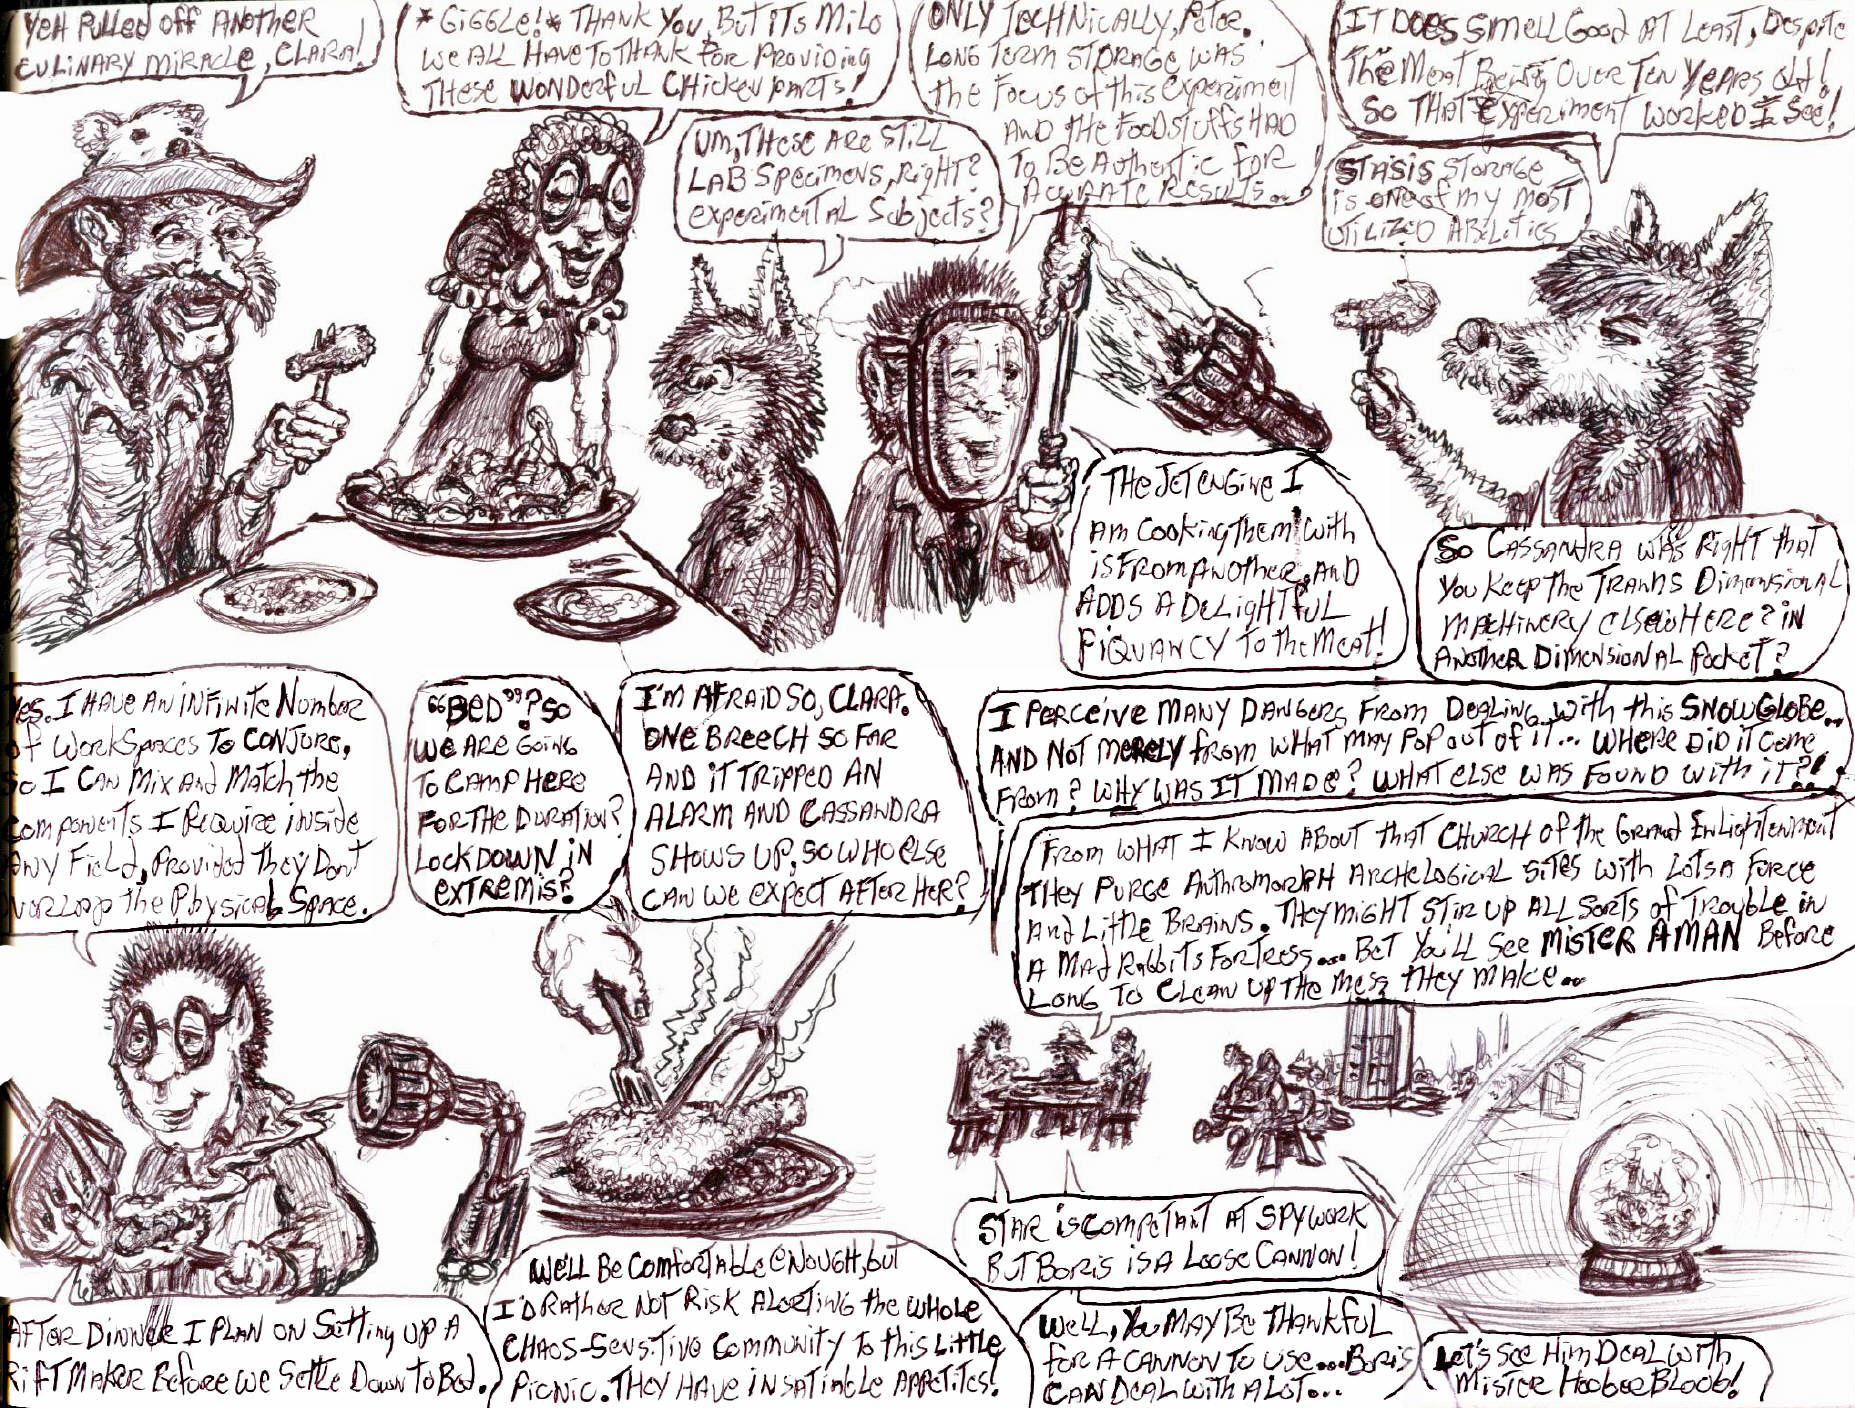 YEH PULLED OFF ANOTHER
CULINARY MIRACLE, CLARA!
*GIGGLE!* THANK YOU, BUT ITS MILO
WE ALL HAVE TO THANK FOR PROVIDING
THESE WONDERFUL CHICKEN PARTS!
UM, THESE ARE STILL
LAB SPECIMENS, RIGHT?
EXPERIMENTAL SUBJECTS?
ONLY TECHNICALLY, PETER.
LONG TERM STORAGE WAS
THE FOCUS OF THIS EXPERIMENT
AND THE FOODSTUFFS HAD
TO BE AUTHENTIC FOR
ACCURATE RESULTS...
IT DOES SMELL GOOD AT LEAST, DESPITE
THE MEAT BEING OVER TEN YEARS OLD!
SO THAT EXPERIMENT WORKED I SEE!
STASIS STORAGE
IS ONE OF MY MOST
UTILIZED ABILITIES
THE JET ENGINE I
AM COOKING THEM WITH
IS FROM ANOTHER, AND
ADDS A DELIGHTFUL
PIQUANCY TO THE MEAT!
SO CASSANDRA WAS RIGHT THAT
YOU KEEP THE TRANNS DIMENSIONAL
MACHINERY ELSEWHERE? IN
ANOTHER DIMENSIONAL POCKET?
YES. I HAVE AN INFINITE NUMBER
OF WORKSPACES TO CONJURE,
SO I CAN MIX AND MATCH THE
COMPONENTS I REQUIRE INSIDE
ANY FIELD, PROVIDED THEY DON'T
OVERLOOP THE PHYSICAL SPACE.
"BED"? SO
WE ARE GOING
TO CAMP HERE
FOR THE DURATION?
LOCKDOWN IN
EXTREMIS?
I'M AFRAID SO, CLARA.
ONE BREECH SO FAR
AND IT TRIPPED AN
ALARM AND CASSANDRA
SHOWS UP, SO WHO ELSE
CAN WE EXPECT AFTER HER?
I PERCEIVE MANY DANGERS FROM DEALING WITH THIS SNOWGLOBE...
AND NOT MERELY FROM WHAT MAY POP OUT OF IT... WHERE DID IT COME
FROM? WHY WAS IT MADE? WHAT ELSE WAS FOUND WITH IT?!...
FROM WHAT I KNOW ABOUT THAT CHURCH OF THE GRAND ENLIGHTENMENT
THEY PURGE ANTHROMORPH ARCHELOGICAL SITES WITH LOTSA FORCE
AND LITTLE BRAINS. THEY MIGHT STIR UP ALL SORTS OF TROUBLE IN
A MAD RABBITS FORTRESS... BET YOU'LL SEE MISTER AMAN BEFORE
LONG TO CLEAN UP THE MESS THEY MAKE...
AFTER DINNER I PLAN ON SETTING UP A
RIFT MAKER BEFORE WE SETTLE DOWN TO BED.
WE'LL BE COMFORTABLE ENOUGH, BUT
I'D RATHER NOT RISK ALERTING THE WHOLE
CHAOS-SENSITIVE COMMUNITY TO THIS LITTLE
PICNIC. THEY HAVE INSATIABLE APPETITES!
STAR IS COMPETANT AT SPYWORK
BUT BORIS IS A LOOSE CANNON!
WELL, YOU MAY BE THANKFUL
FOR A CANNON TO USE... BORIS
CAN DEAL WITH A LOT...
LET'S SEE HIM DEAL WITH
MISTER HOOBERBLOOB!